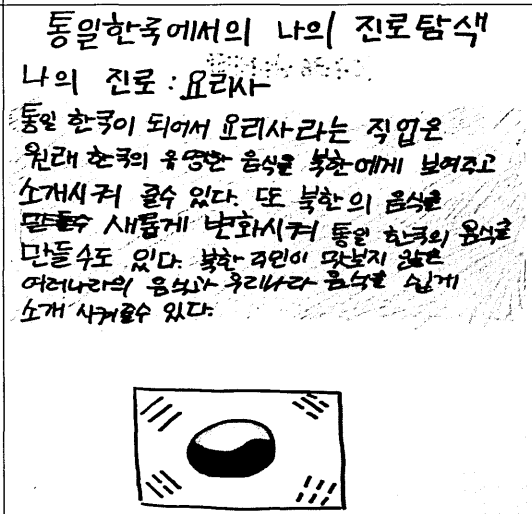 통일한국에서의 나의 진로탐색
나의 진로 : 요리사
통일 한국이 되어서 요리사라는 직업은
원래 한국의 유명한 음식을 북한에게 보여주고
소개시켜 줄수 있다. 또 북한의 음식을
새롭게 변화시켜 통일 한국의 음식을
만들수도 있다. 북한 주민이 맛보지 않은
여러나라의 음식과 우리나라 음식을 쉽게
소개 시켜줄수 있다.